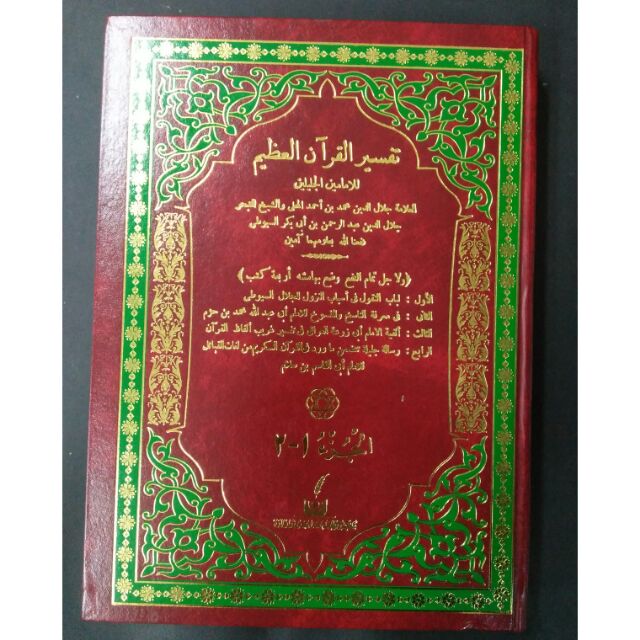 تفسير القرآن العظيم
للامامين الجليلين
العلامة جلال الدين محمد بن أحمد المحلى والشيخ المتبحر
جلال الدين عبد الرحمن بن أبى بكر السيوطى
نفعنا الله بعلومهما آمين
(ولأجل تمام النفع وضع بهامشه أربعة كتب)
الأول : لباب النقول فى أسباب النزول للجلال السيوطى
الثانى : فى معرفة الناسخ والمنسوخ للامام أبى عبد الله محمد بن حزم
الثالث : ألفية الامام أبى زرعة العراقى فى تفسير غريب ألفاظ القرآن
الرابع : رسالة جليلة تتضمن ما ورد فى القرآن الكريم من لغات القبائل
للامام أبى القاسم بن سلام
الجزء ١-٢